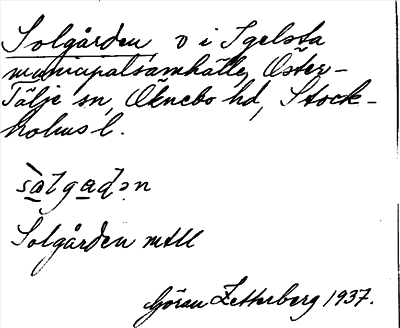 Solgården, v i Igelsta
municipalsamhälle, Öster-
Tälje sn, Öknebo hd, Stock-
holms l.
Solgården mtll
Göran Zetterberg 1937.